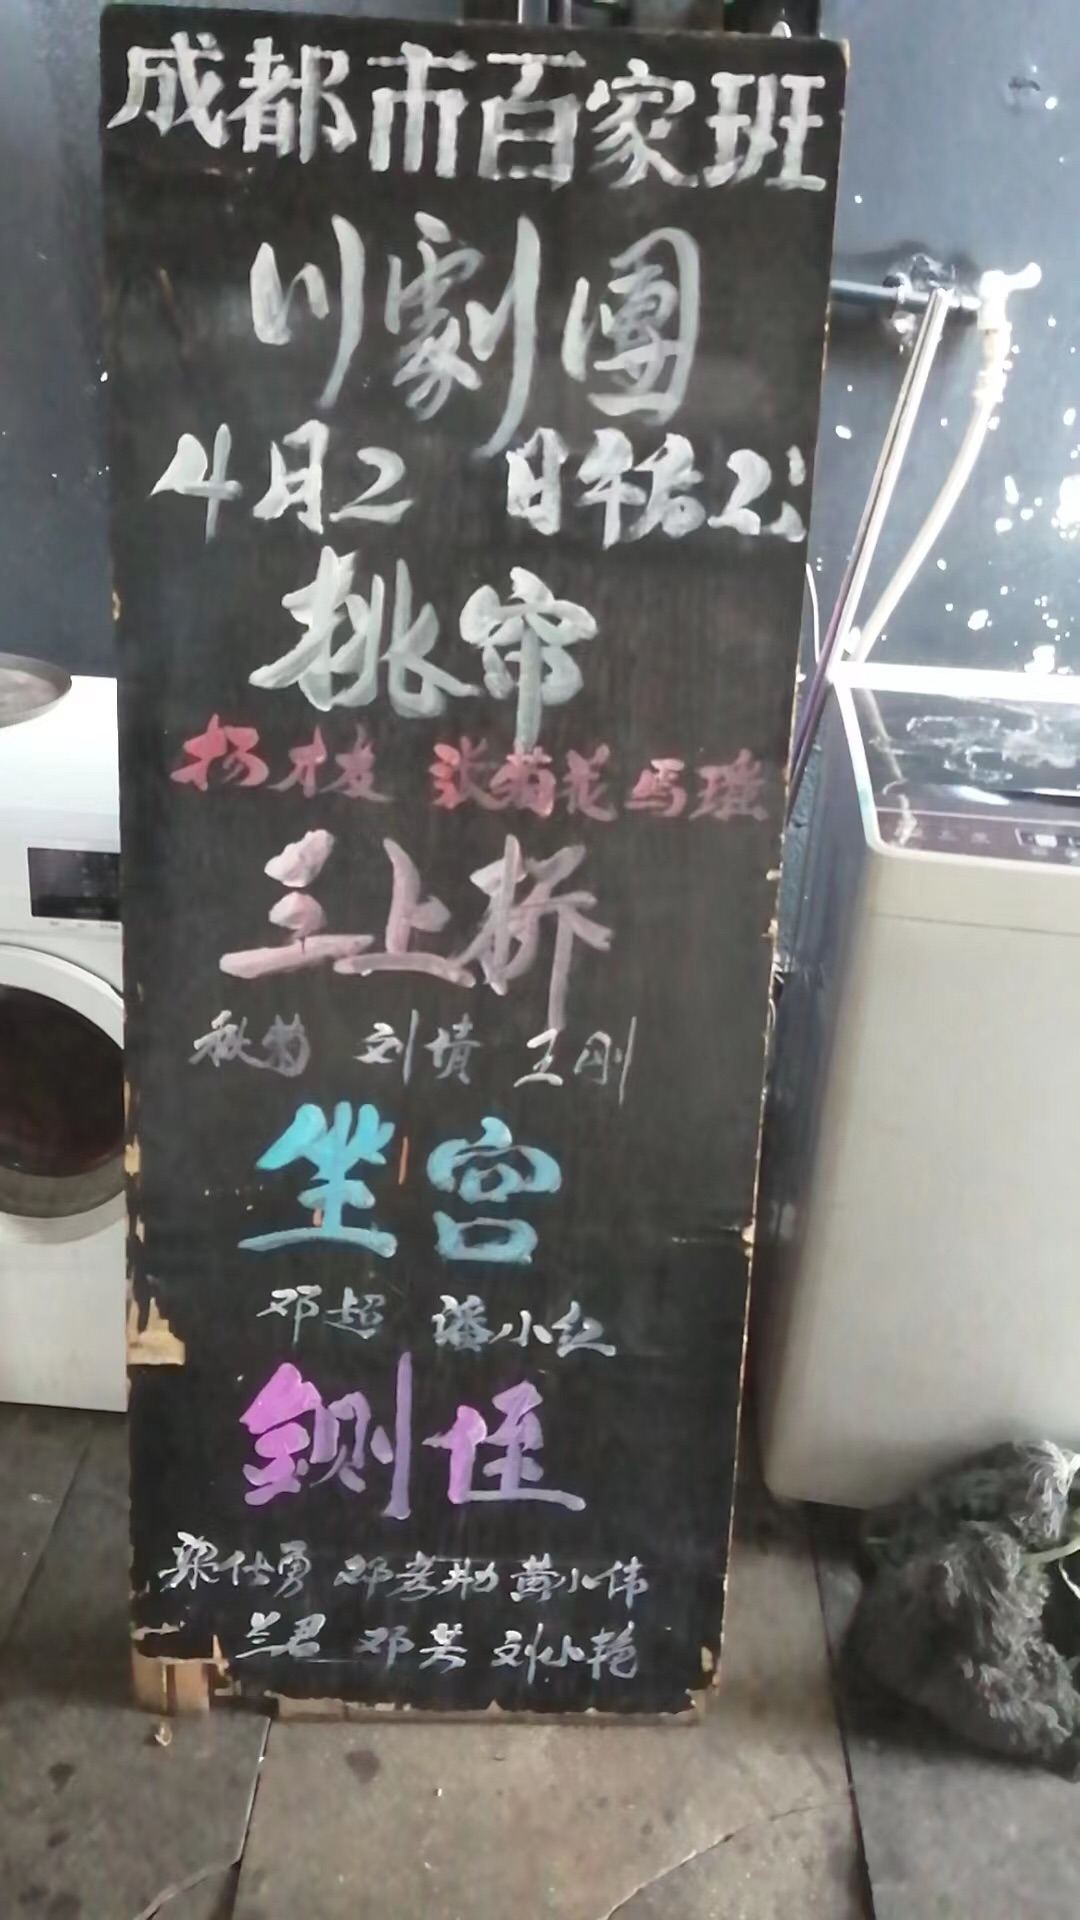 成都市百家班
川劇團
4月2 日午后2:
挑帘
杨 张菊花 马
三上桥
秋菊 刘 王刚
坐宫
邓超 潘小红
铡侄
梁仕勇 邓孝勋 黄小伟
兰君 邓芳 刘小艳